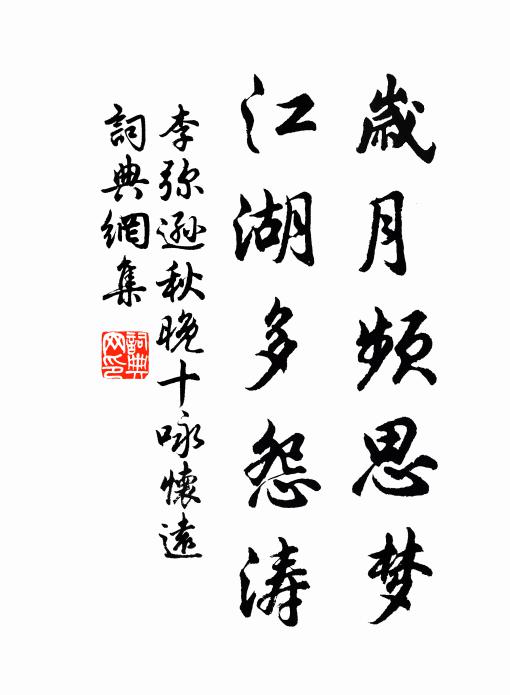 歲月頻思梦
江湖多怨涛
李弥遜秋晚十咏懷遠
詞典網集
詞典网印